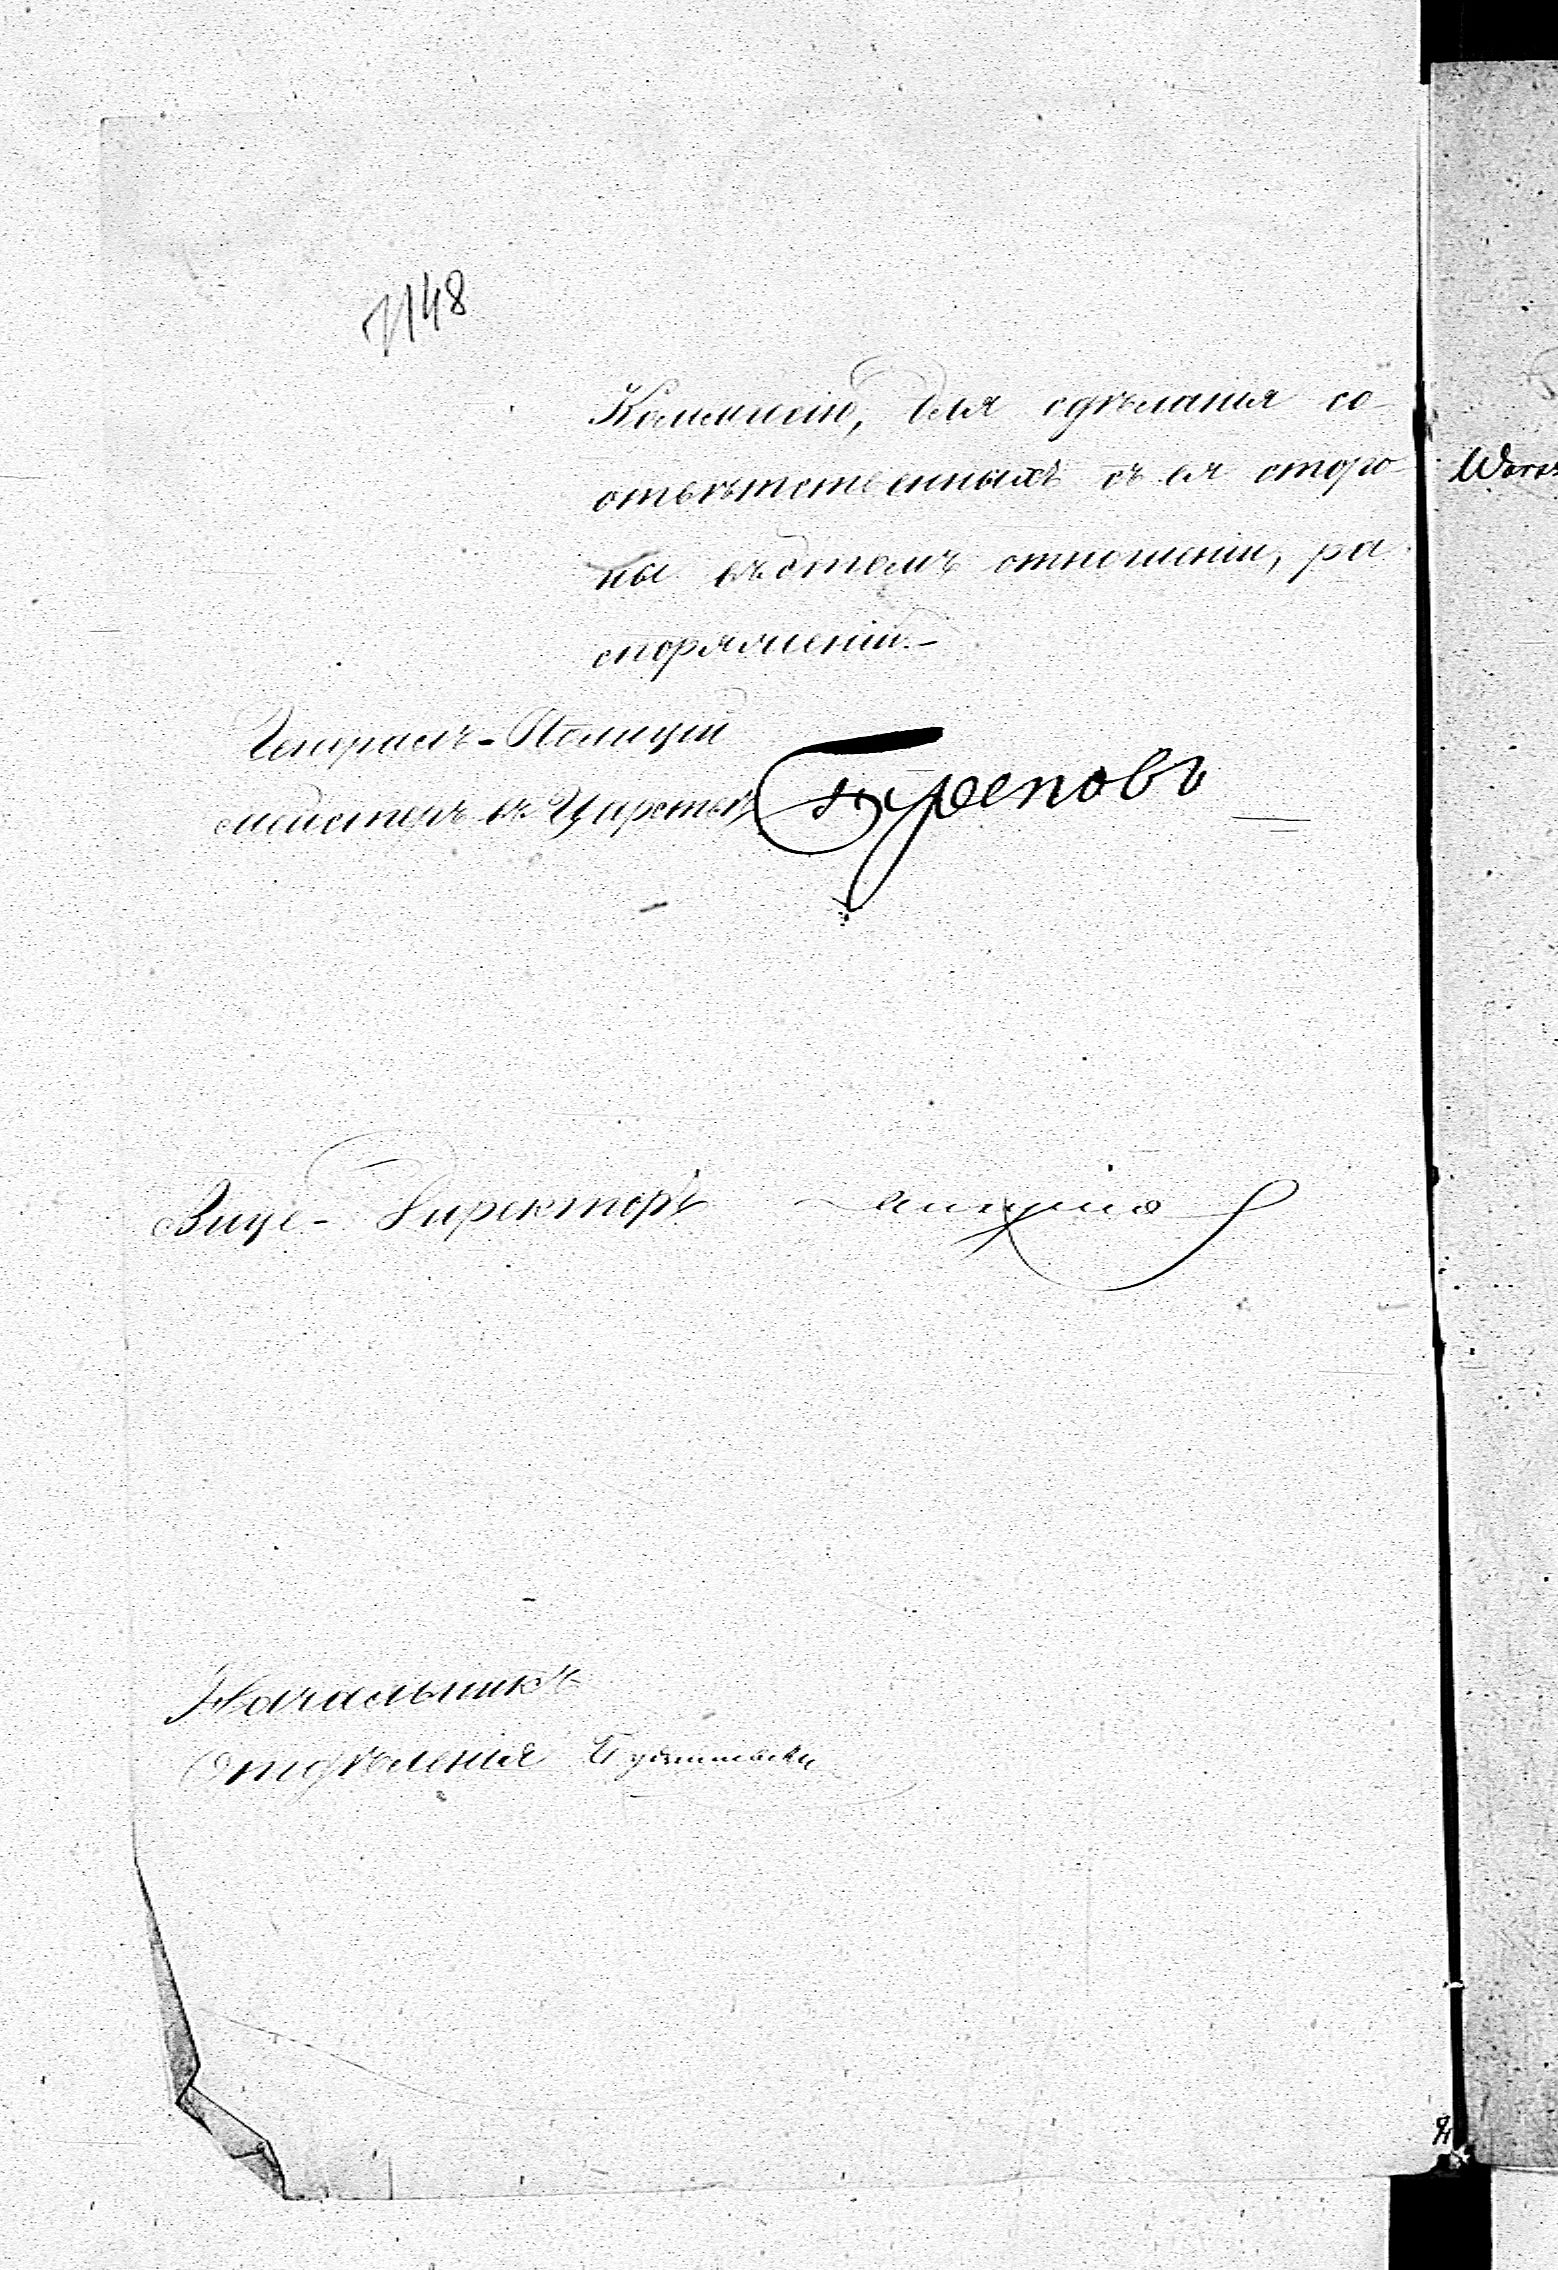 1148
Коммисію, для сдѣланія со-
отвѣтственныхъ съ ея сторо-
ны въ этомъ отношеніи, ра-
споряженій.-
Генералъ-Полицій
мейстеръ въ Царствѣ Треповъ
Вице-Директоръ
Начальникъ
Отдѣленія